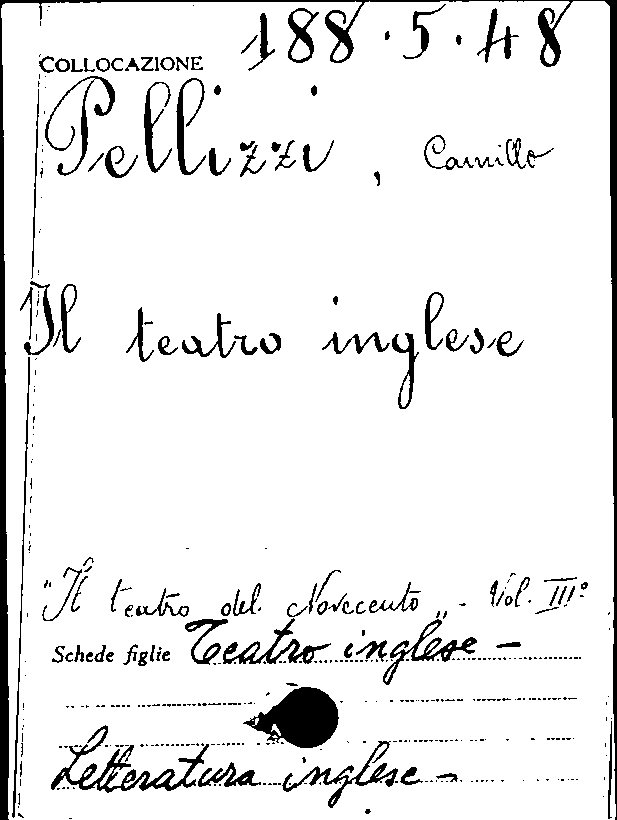 COLLOCAZIONE 188.5.48
Pellizzi, Camillo
Il teatro inglese
"Il teatro del Novecento" - Vol. III°
Schede figlie Teatro inglese -
Letteratura inglese -